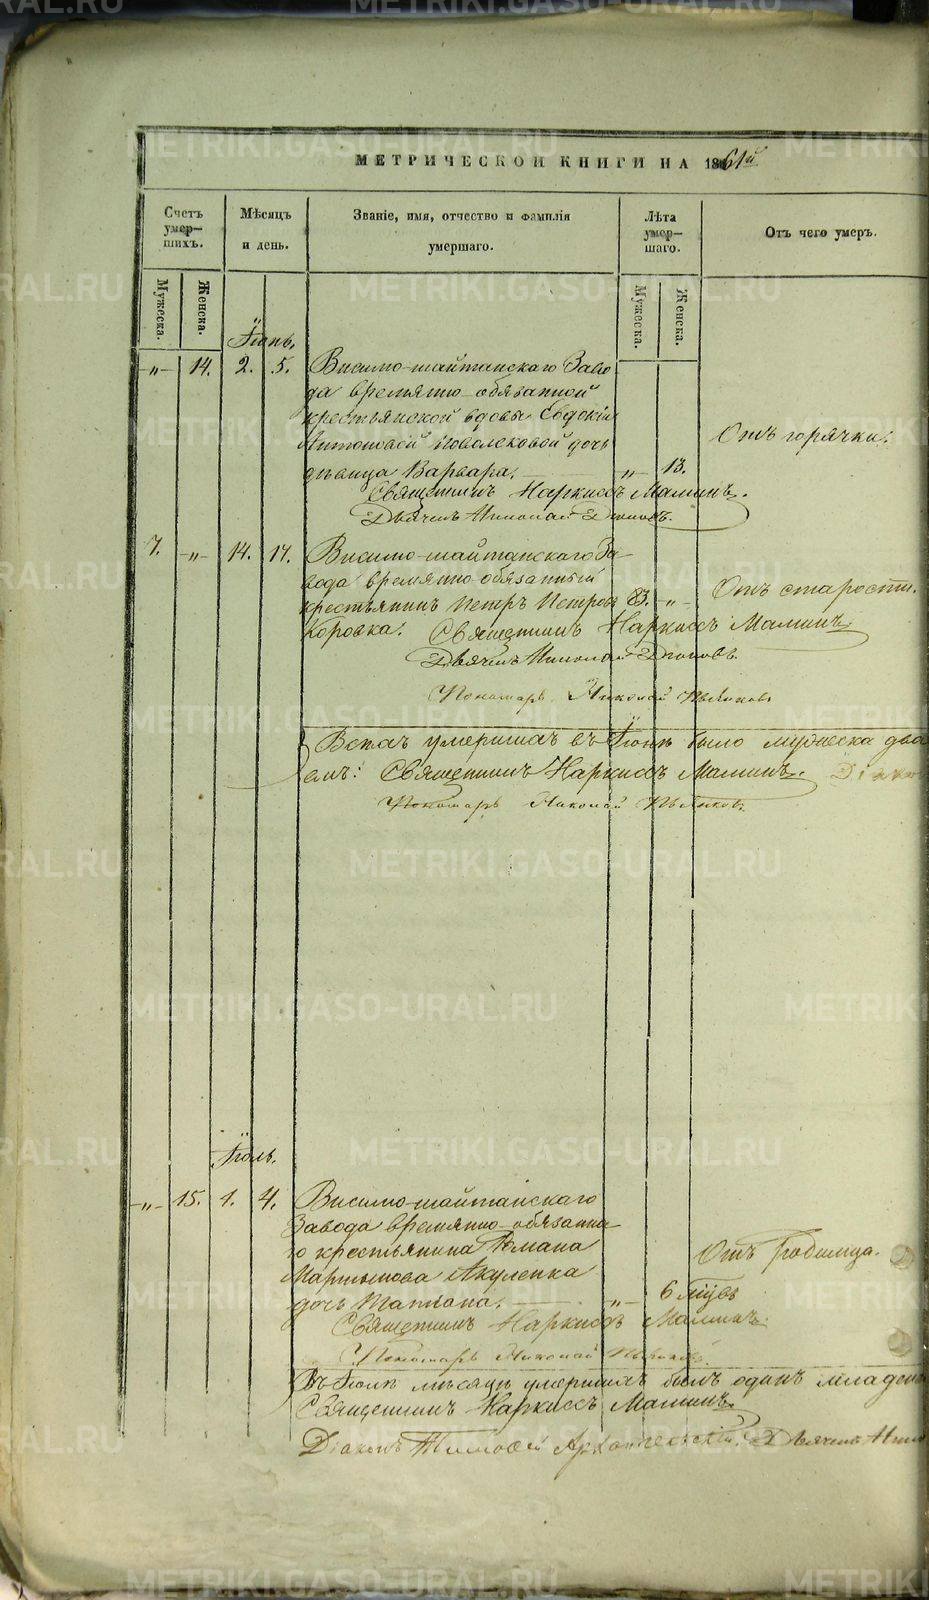 МЕТРИЧЕСКОЙ КНИГИ НА 1861й
Счетъ умер-шихъ.
Мѣсяцъ и день.
Званіе, имя, отчество и фамилія умершаго.
Лѣта умер-шаго.
Отъ чего умеръ.
Мужеска.
Женска.
Мужеска.
Женска.
Іюнь.
-„- 14. 2. 5. Висимо-шайтанскаго Заво
да временно-обязанной
крестьянской вдовы Евдокіи
Антоновой дочь
Отъ горячки.
дѣвица Варвара. -„- 13.
Священникъ Наркиссъ Маминъ.
Дьячекъ Николай
7. -„- 14. 17. Висимо-шайтанскаго За-
вода временно-обязанный
Отъ старости.
крестьянинъ Петръ Петровъ 83. -„-
Коровка. Священникъ Наркиссъ Маминъ.
Дьячекъ Николай
Пономарь Николай
Всѣхъ умершихъ въ Іюнѣ было мужеска два
Священникъ Наркиссъ Маминъ.
Пономарь Николай
Іюль.
-„- 15. 1. 4. Висимо-шайтанскаго
Завода временно-обязанна
го крестьянина Романа
Мартынова Акуленка
Отъ Родимца.
дочь Татіана. -„- 6
Священникъ Наркиссъ Маминъ.
Пономарь Николай
Въ Іюлѣ мѣсяцѣ умершихъ былъ одинъ младен
Священникъ Наркиссъ Маминъ.
Діаконъ Тимофей Дьячекъ Нико
METRIKI.GASO-URAL.RU